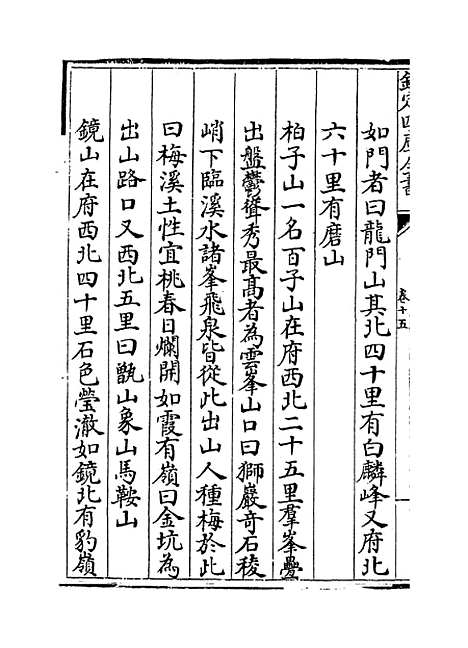 欽定四庫全書
卷十五
如門者曰龍門山其北四十里有白麟峰又府北
六十里有磨山
柏子山一名百子山在府西北二十五里羣峯疊
出盤鬱聳秀最高者為雲峯山口曰獅巖奇石稜
峭下臨溪水諸峯飛泉皆從此出山人種梅於此
曰梅溪土性宜桃春日爛開如霞有嶺曰金坑為
出山路口又西北五里曰甑山象山馬鞍山
鏡山在府西北四十里石色瑩澈如鏡北有豹嶺